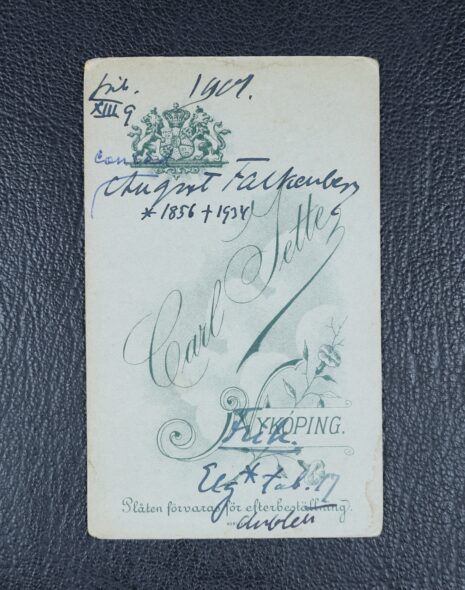 frih.
XIII 9
1907.
Conrad
August Falkenberg
* 1856 + 1934
Carl Setter
NYKÖPING.
frih.
Elg * tab. 17
Plåten förvaras för efterbeställning.
dublett